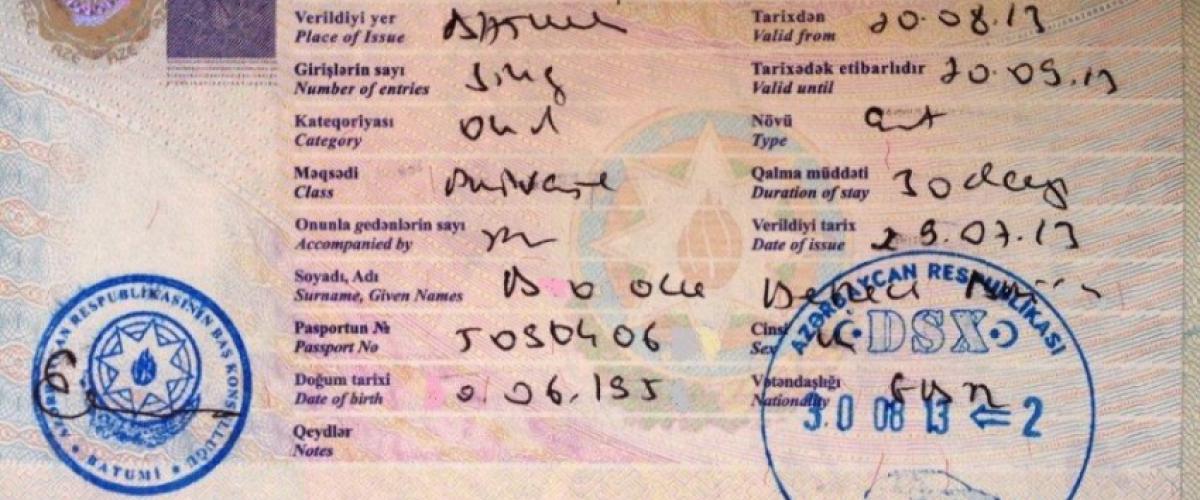 AZE AZE
Verildiyi yer Batumi Tarixdən 20.08.13
Place of Issue Valid from
Girişlərin sayı sing Tarixədək etibarlıdır 20.09.13
Number of entries Valid until
Kateqoriyası Növü
Category Type
Məqsədi private Qalma müddəti 30 day
Class Duration of stay
Onunla gedənlərin sayı Verildiyi tarix 29.07.13
Accompanied by Date of issue
Soyadı, Adı
Surname, Given Names
Pasportun № Cinsi
Passport No Sex
Doğum tarixi Vətəndaşlığı
Date of birth Nationality
Qeydlər
Notes
AZƏRBAYCAN RESPUBLİKASININ BAŞ KONSULLUĞU
BATUMİ
AZƏRBAYCAN RESPUBLİKASI
DSX
30 08 13 ⇐ 2